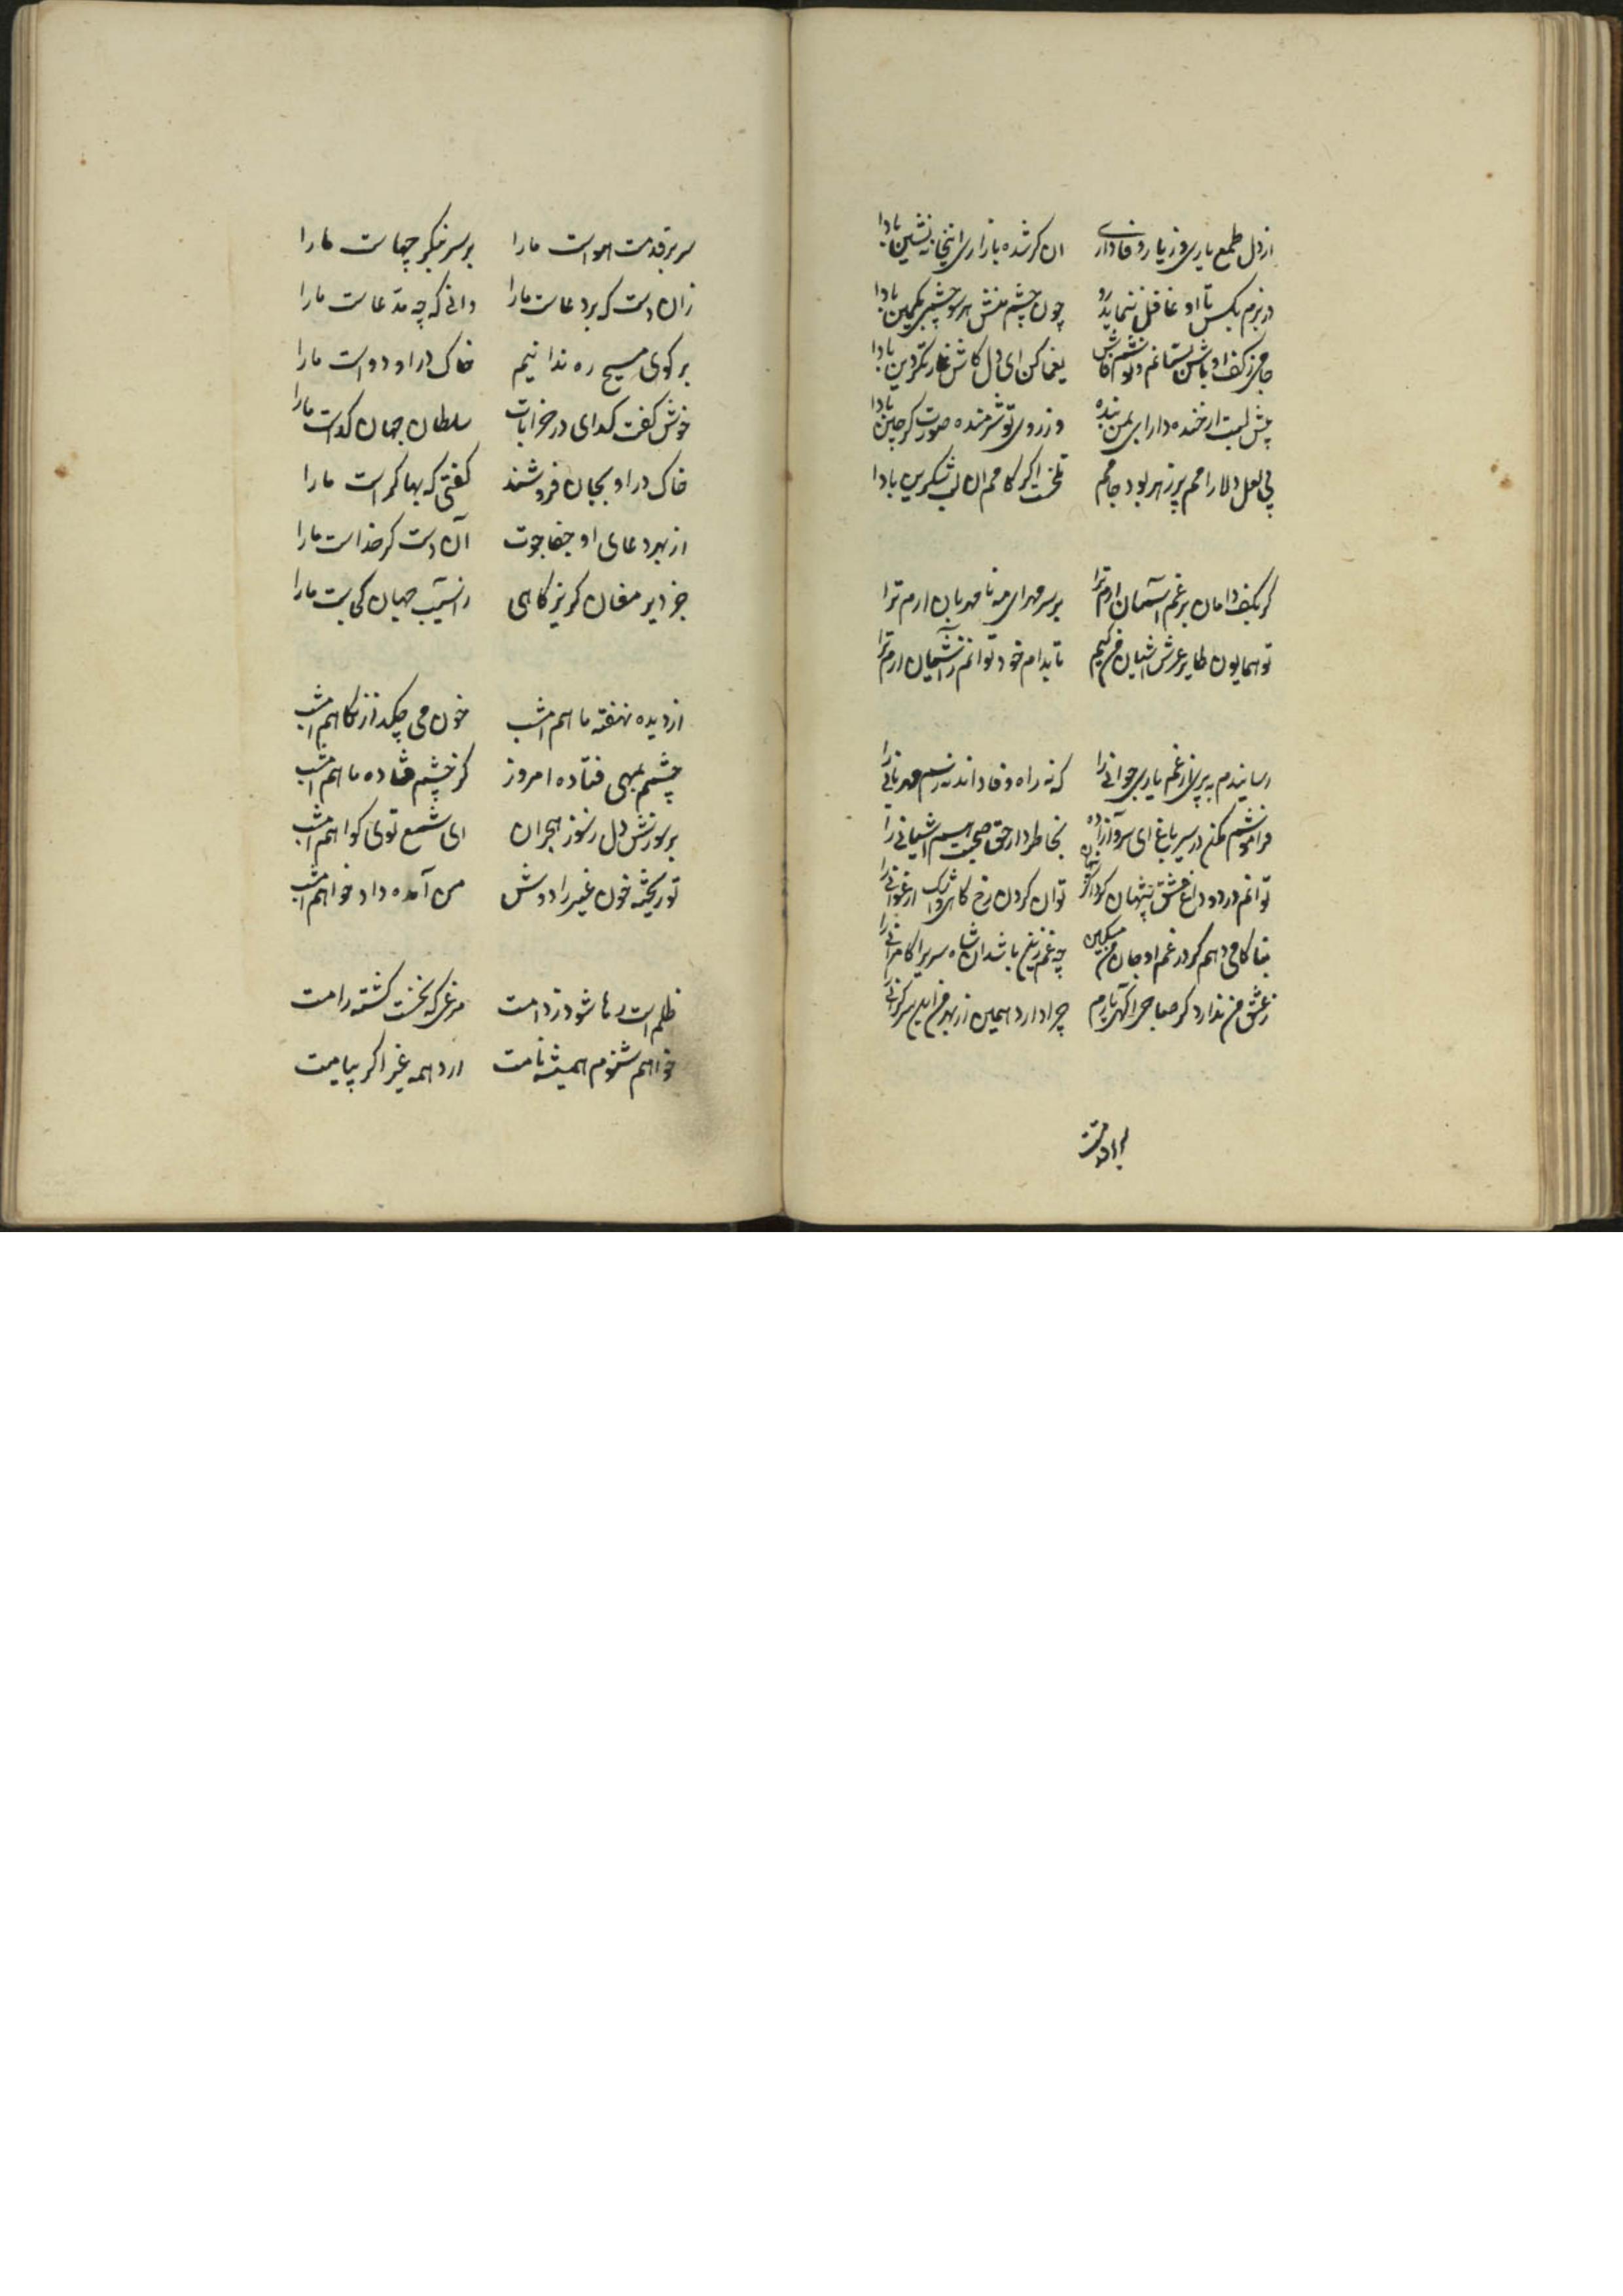 از دل طمع یاری وز یار وفاداری ان کز شده بازاری انیخانه نشین بادا
در بزم بکس تا او غافل ننماید رو چون چشم منش هر سو چشمی بکمین بادا
جامی ز کف او باش بستانم و نوشم فاش یغما کن ای دل کاش غارتگر دین بادا
پیش لبت ار خنده دارا بی من بنده وز روی تو شرمنده صورت گر چین بادا
بی لعل دلارامم پر زهر بود جامم تلخست اگر کامم ان لب شکرین بادا
گر بکف دامان بر غم آسمان ارم ترا بر سر مهر ای مه نامهربان ارم ترا
تو همایون طایر عرش اشیان من کیم تا بدام خود توانم ز آشیان ارم ترا
رسانیدم به پیری از غم یاری جوانی را که نه راه وفا داند نه رسم مهربانی را
فراموشم مکن در سیر باغ ای سرو آزاده بخاطر دار حق صحبت هم اشیانی را
توانم درد و داغ عشق پنهان کرد اگر پنهان توان کردن رخ کاهی و اشک ارغوانی را
بناکامی دهم گر در غم او جان من مسکین چه غم زین باشد ان شاه سریر کامرانی را
ز عشق من ندارد گر صباحی آگهی یارم چرا دارد همین از بهر من این سرگرانی را
سر بر قدمت هواست ما را بر سر بنگر چهاست ما را
زان دست که بر دعاست ما را دانی که چه مدعاست ما را
بر کوی مسیح ره ندانیم خاک در او دواست ما را
خوش گفت گدای در خرابات سلطان جهان گداست ما را
خاک در او بجان فروشند گفتی که بها کم است ما را
از بهر دعای او جفاجوت آن دست که خداست ما را
جز دیر مغان گریزگاهی ز اسیب جهان کجاست ما را
از دیده نهفته ماهم امشب خون می چکد از نگاهم امشب
چشمم بمهی فتاده امروز کز چشم فتاده ماهم امشب
بر سوزش دل ز سوز هجران ای شمع توی گواهم امشب
تو ریخته خون غیر را دوش من آمده داد خواهم امشب
ظلم است رها شود ز دامت مرغی که نخست گشته رامت
خواهم شنوم همیشه نامت ارد همه غیر اگر پیامت